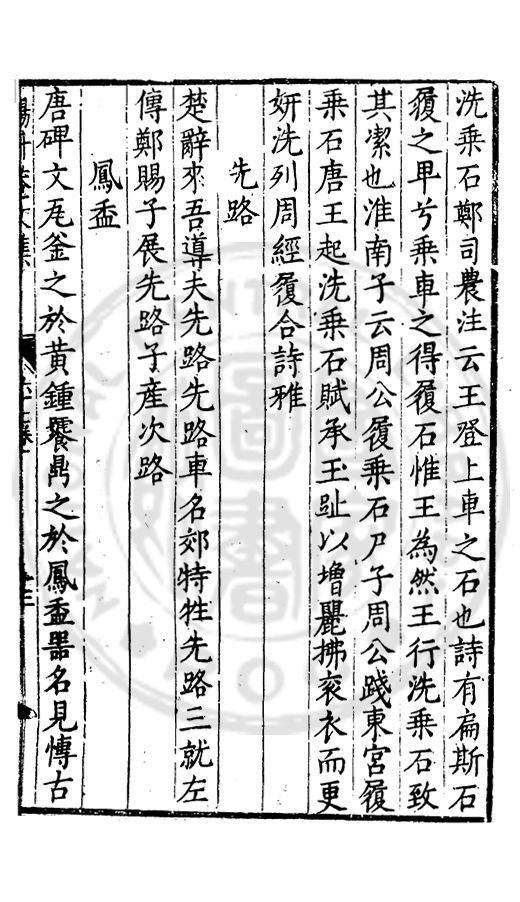 洗乗石鄭司農注云王登上車之石也詩有扁斯石
履之卑兮乗車之得履石惟王為然王行洗乗石致
其潔也淮南子云周公履乗石尸子周公踐東宮履
乗石唐王起洗乗石賦承玉趾以増麗拂衮衣而更
妍洗列周經履合詩雅
先路
楚辭來吾導夫先路先路車名郊特牲先路三就左
傳鄭賜子展先路子産次路
鳳盉
唐碑文瓦釜之於黄鍾饗鼎之於鳳盉器名見博古